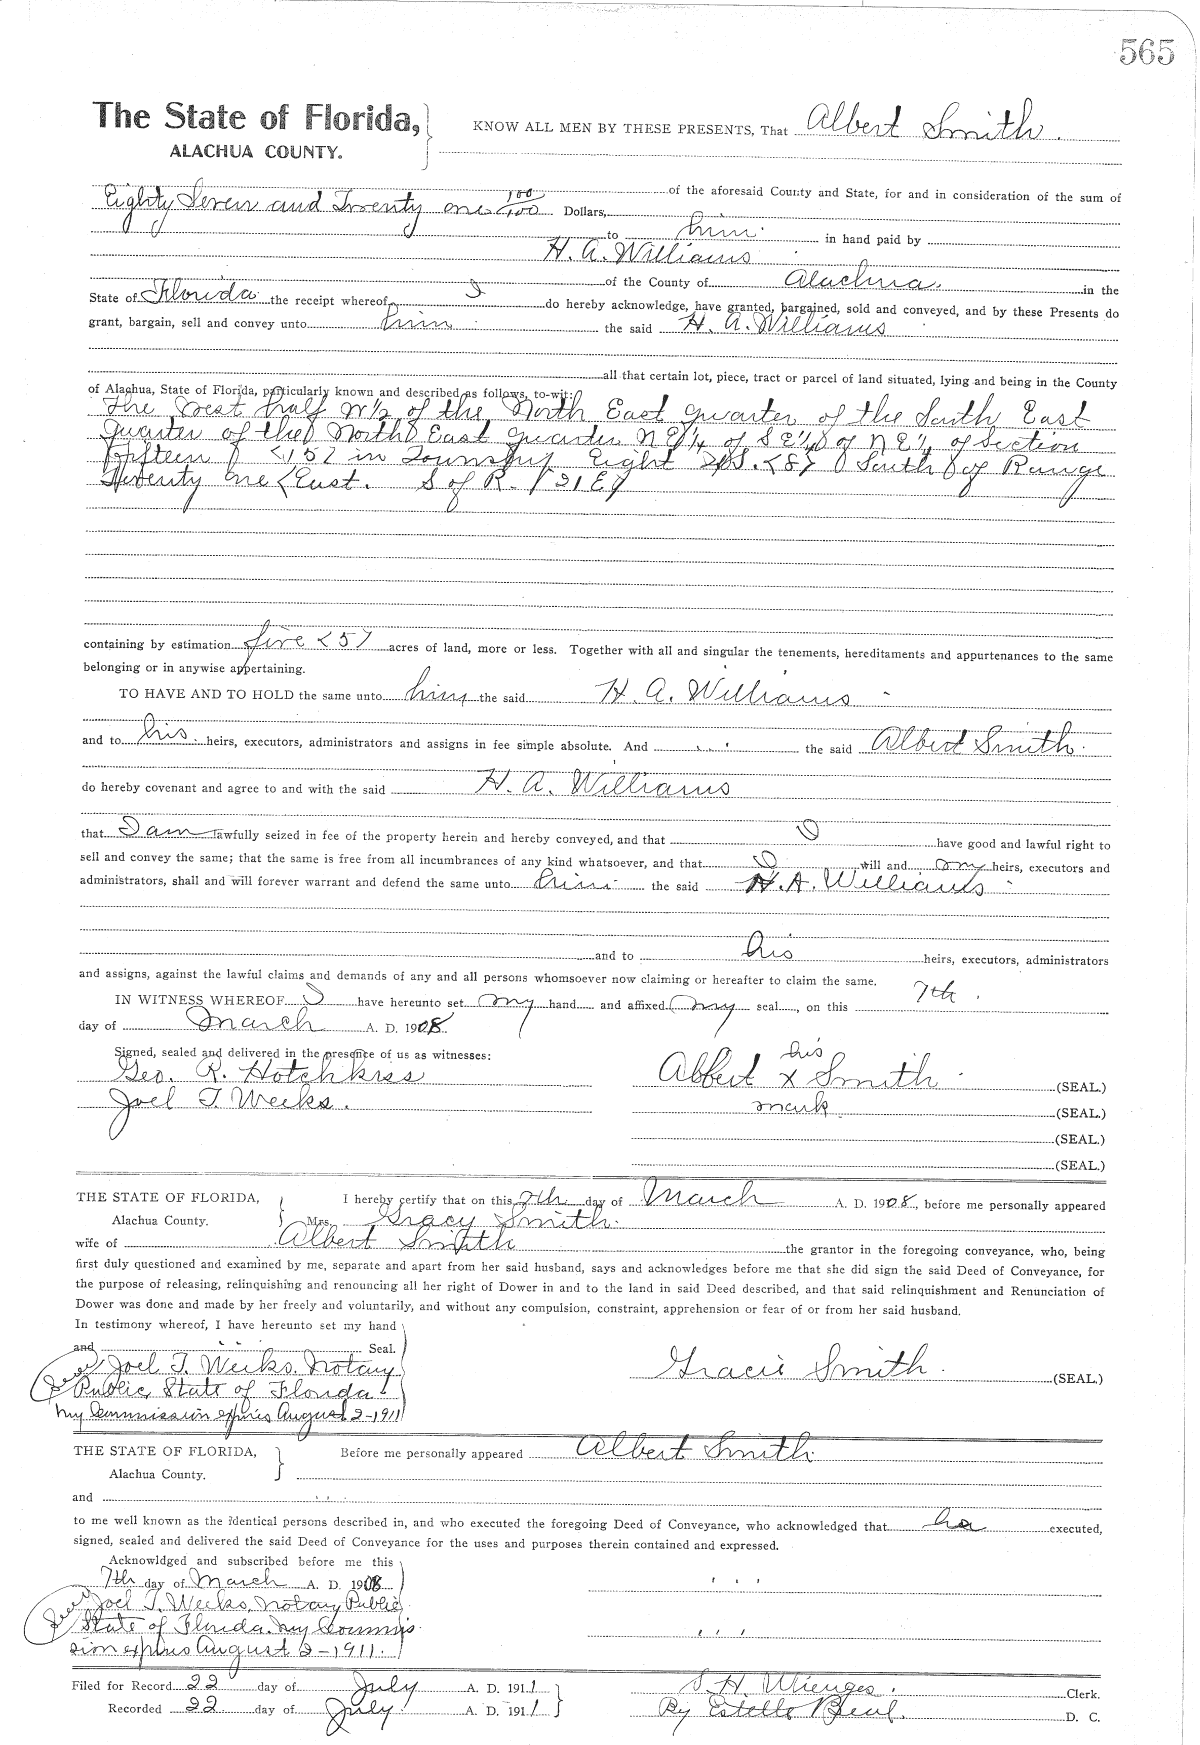 565
The State of Florida,
ALACHUA COUNTY.
KNOW ALL MEN BY THESE PRESENTS, That Albert Smith.
of the aforesaid County and State, for and in consideration of the sum of
Eighty Seven and Twenty one 100/100 Dollars,
to him in hand paid by
H. A. Williams
of the County of Alachua, in the
State of Florida the receipt whereof I do hereby acknowledge, have granted, bargained, sold and conveyed, and by these Presents do
grant, bargain, sell and convey unto him the said H. A. Williams
all that certain lot, piece, tract or parcel of land situated, lying and being in the County
of Alachua, State of Florida, particularly known and described as follows, to-wit:
The West half W½ of the North East quarter of the South East
quarter of the North East quarter NE¼ of SE¼ of NE¼ of Section
Fifteen <15> in Township Eight <8> South of Range
Twenty One <East. S of R. 21E
containing by estimation five <5> acres of land, more or less. Together with all and singular the tenements, hereditaments and appurtenances to the same
belonging or in anywise appertaining.
TO HAVE AND TO HOLD the same unto him the said H. A. Williams
and to his heirs, executors, administrators and assigns in fee simple absolute. And the said Albert Smith
do hereby covenant and agree to and with the said H. A. Williams
that I am lawfully seized in fee of the property herein and hereby conveyed, and that I have good and lawful right to
sell and convey the same; that the same is free from all incumbrances of any kind whatsoever, and that I will and my heirs, executors and
administrators, shall and will forever warrant and defend the same unto him the said H. A. Williams
and to his heirs, executors, administrators
and assigns, against the lawful claims and demands of any and all persons whomsoever now claiming or hereafter to claim the same.
IN WITNESS WHEREOF I have hereunto set my hand and affixed my seal, on this 7th.
day of March A. D. 1908.
Signed, sealed and delivered in the presence of us as witnesses:
Geo. R. Hotchkiss
Joel T. Weeks.
his
Albert x Smith (SEAL.)
mark (SEAL.)
(SEAL.)
(SEAL.)
THE STATE OF FLORIDA,
Alachua County.
I hereby certify that on this 7th day of March A. D. 1908, before me personally appeared
Mrs. Gracy Smith.
wife of Albert Smith the grantor in the foregoing conveyance, who, being
first duly questioned and examined by me, separate and apart from her said husband, says and acknowledges before me that she did sign the said Deed of Conveyance, for
the purpose of releasing, relinquishing and renouncing all her right of Dower in and to the land in said Deed described, and that said relinquishment and Renunciation of
Dower was done and made by her freely and voluntarily, and without any compulsion, constraint, apprehension or fear of or from her said husband.
In testimony whereof, I have hereunto set my hand
and Seal.
Seal Joel T. Weeks. Notary
Public, State of Florida.
My Commission expires August 2-1911
Gracie Smith. (SEAL.)
THE STATE OF FLORIDA,
Alachua County.
Before me personally appeared Albert Smith
and
to me well known as the identical persons described in, and who executed the foregoing Deed of Conveyance, who acknowledged that he executed,
signed, sealed and delivered the said Deed of Conveyance for the uses and purposes therein contained and expressed.
Acknowldged and subscribed before me this
7th day of March A. D. 1908
Seal Joel T. Weeks, Notary Public
State of Florida. My Commis
sion expires August 2-1911.
Filed for Record 22 day of July A. D. 1911
Recorded 22 day of July A. D. 1911
S. H. Wienges. Clerk.
By Estelle D. C.